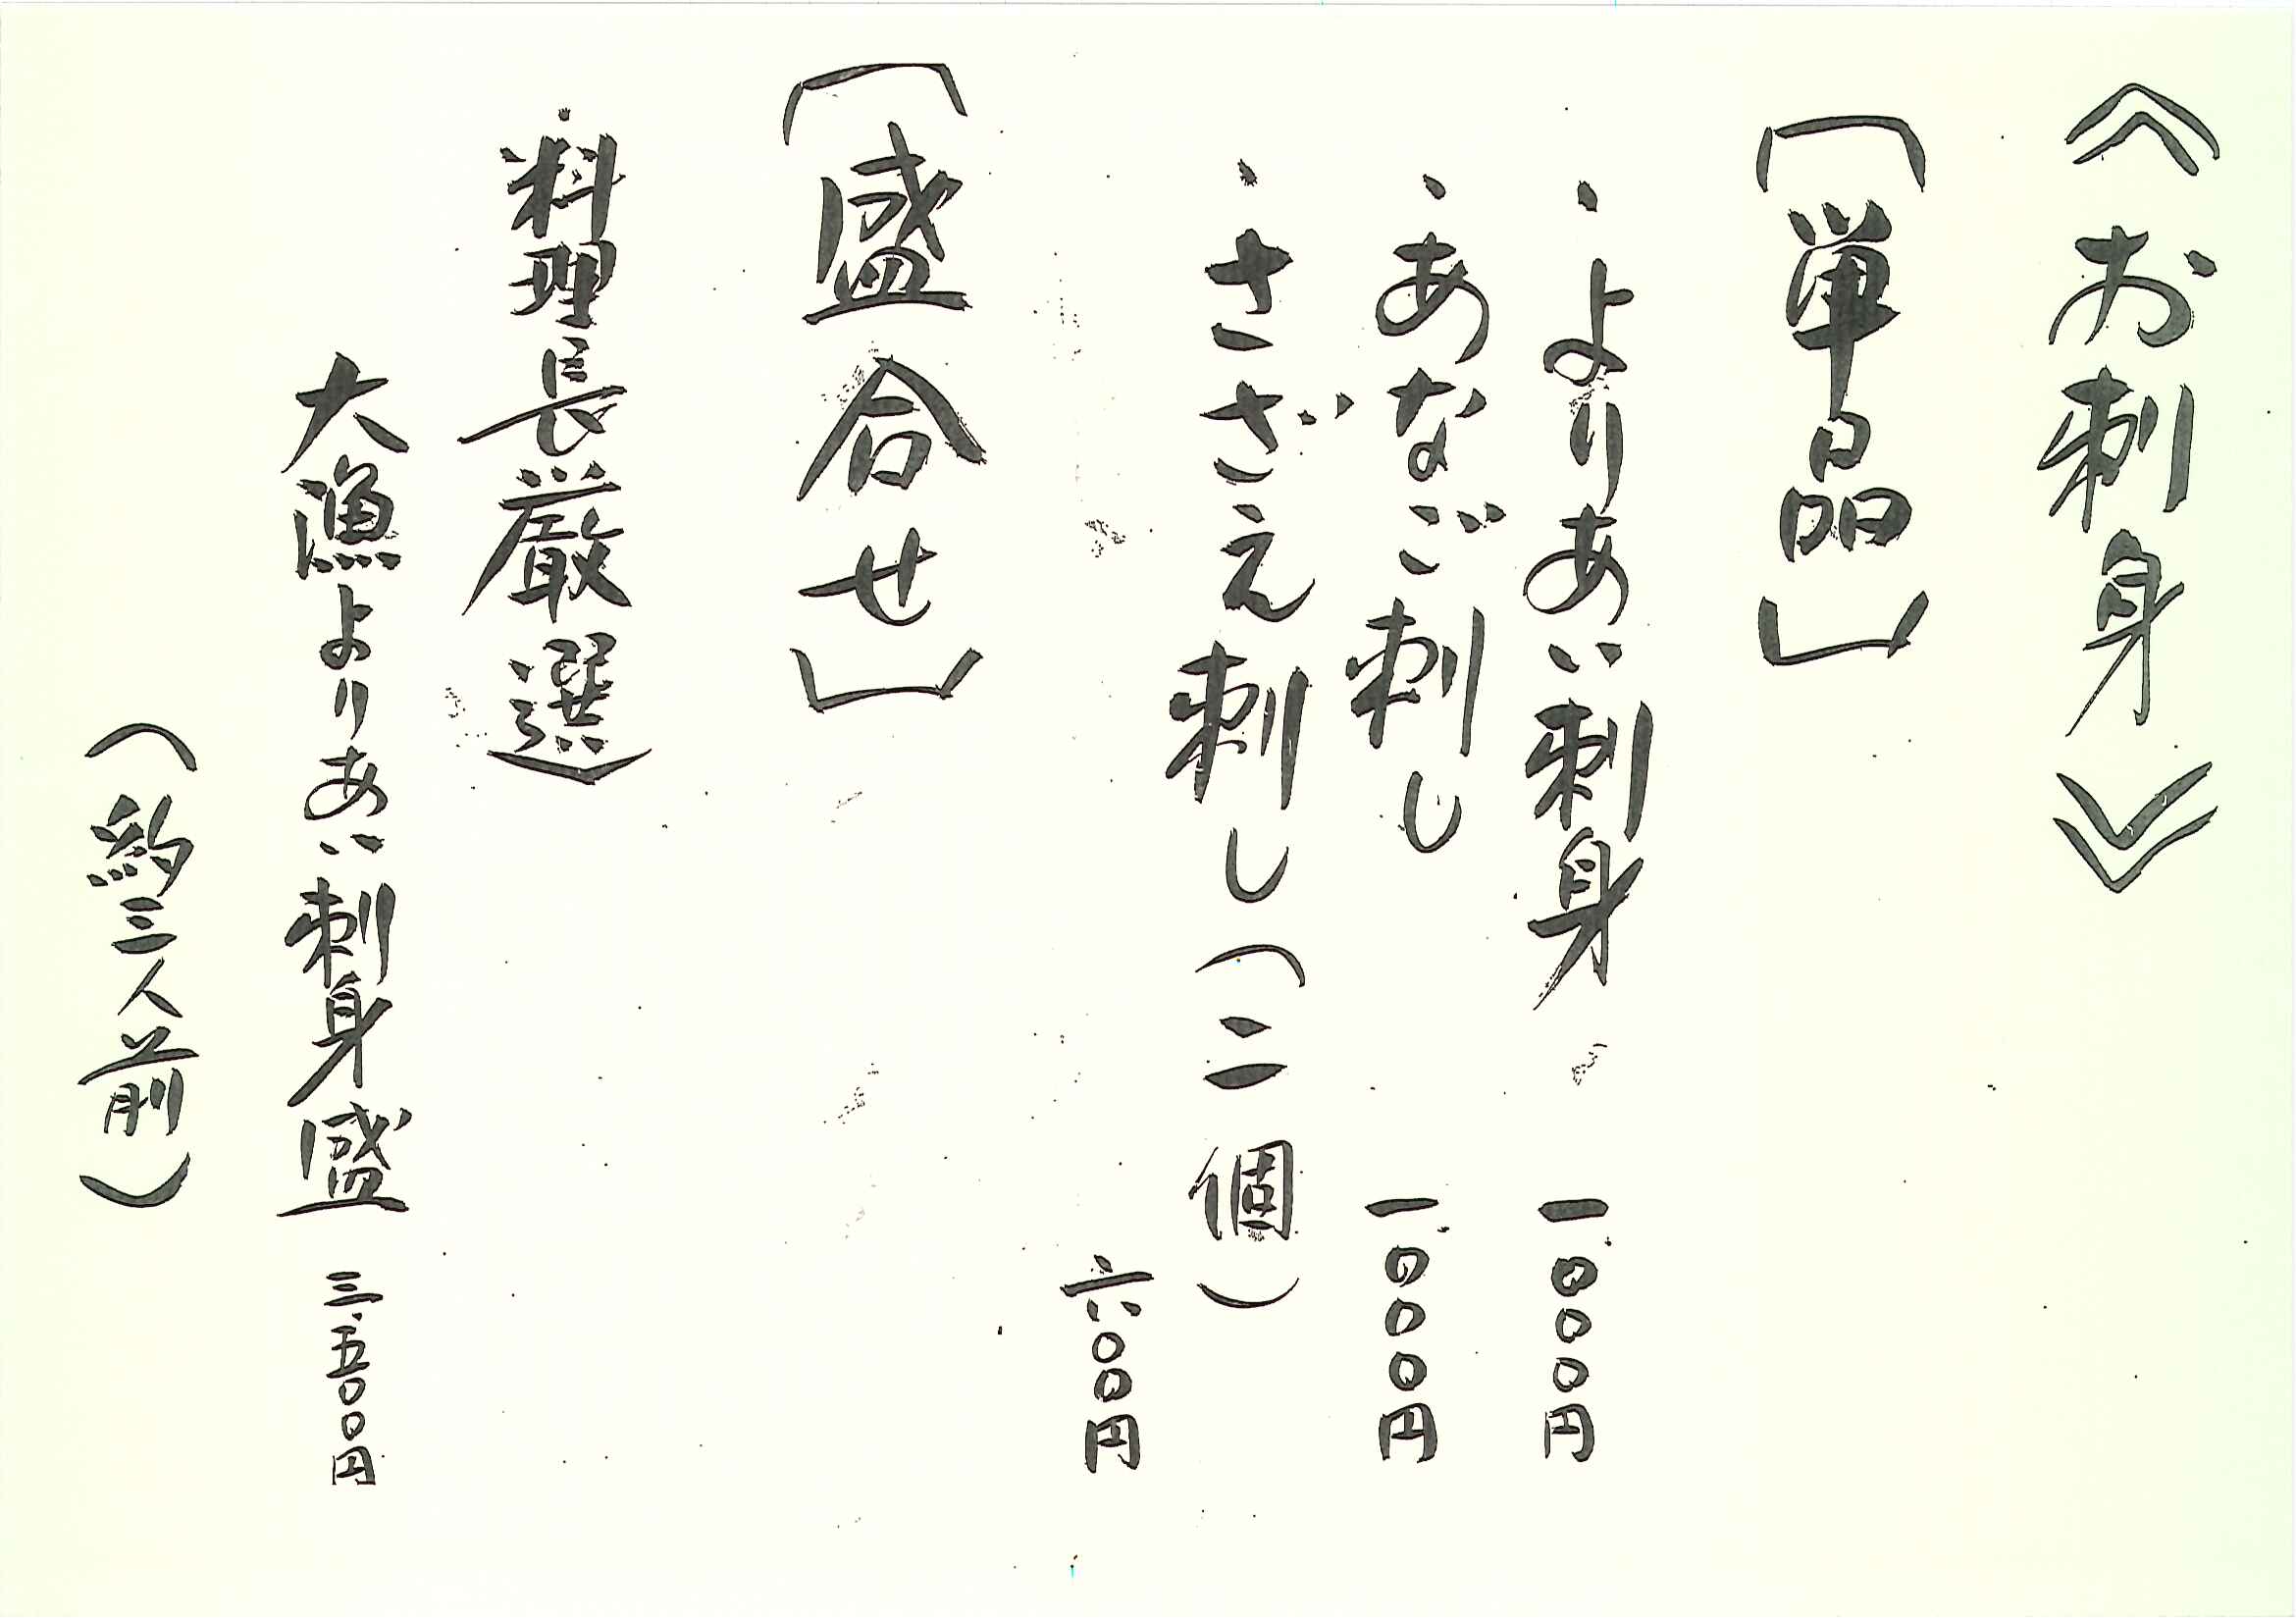 《お刺身》
［単品］
・よりあい刺身 一.〇〇〇円
・あなご刺し 一.〇〇〇円
・さざえ刺し（二個）
六〇〇円
［盛合せ］
・料理長厳選〉
大漁よりあい刺身盛 三.五〇〇円
（約三人前）